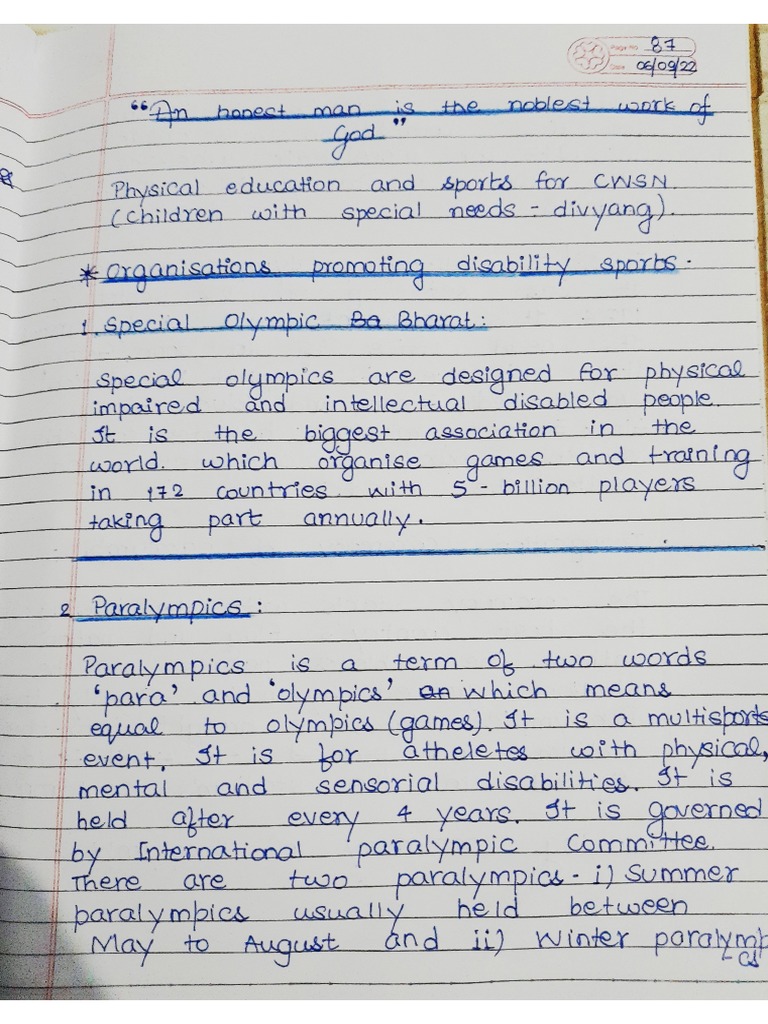 Page No. 87
Date 06/09/22
"An honest man is the noblest work of
God"
Physical education and sports for CWSN.
(children with special needs - divyang).
* Organisations promoting disability sports.
1. Special Olympic Ba Bharat:
Special olympics are designed for physical
impaired and intellectual disabled people.
It is the biggest association in the
world. which organise games and training
in 172 countries with 5-billion players
taking part annually.
2 Paralympics:
Paralympics is a term of two words
'para' and 'olympics' an which means
equal to olympics (games). It is a multisports
event. It is for atheletes with physical,
mental and sensorial disabilities. It is
held after every 4 years. It is governed
by International paralympic Committee.
There are two paralympics - i) Summer
paralympics usually held between
May to August and ii) Winter paralymp
-cs